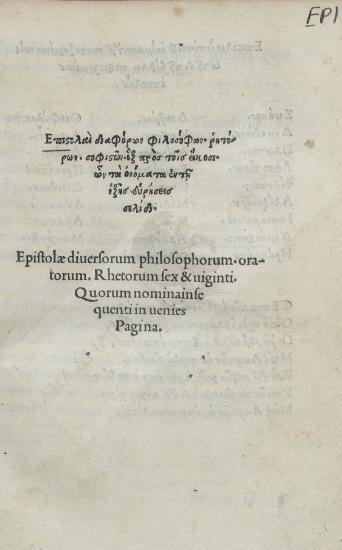 EP1
Ἐπιστολαὶ διαφόρων φιλοσόφων. ῥητό-
ρων. σοφιστῶν. ἓξ πρὸς τοῖς εἴκοσι
ὧν τὰ ὀνόματα ἐν τῇ
ἑξῆς εὑρήσεις
σελίδι.
Epistolæ diuersorum philosophorum. ora-
torum. Rhetorum sex & uiginti.
Quorum nomina in se
quenti in uenies
Pagina.